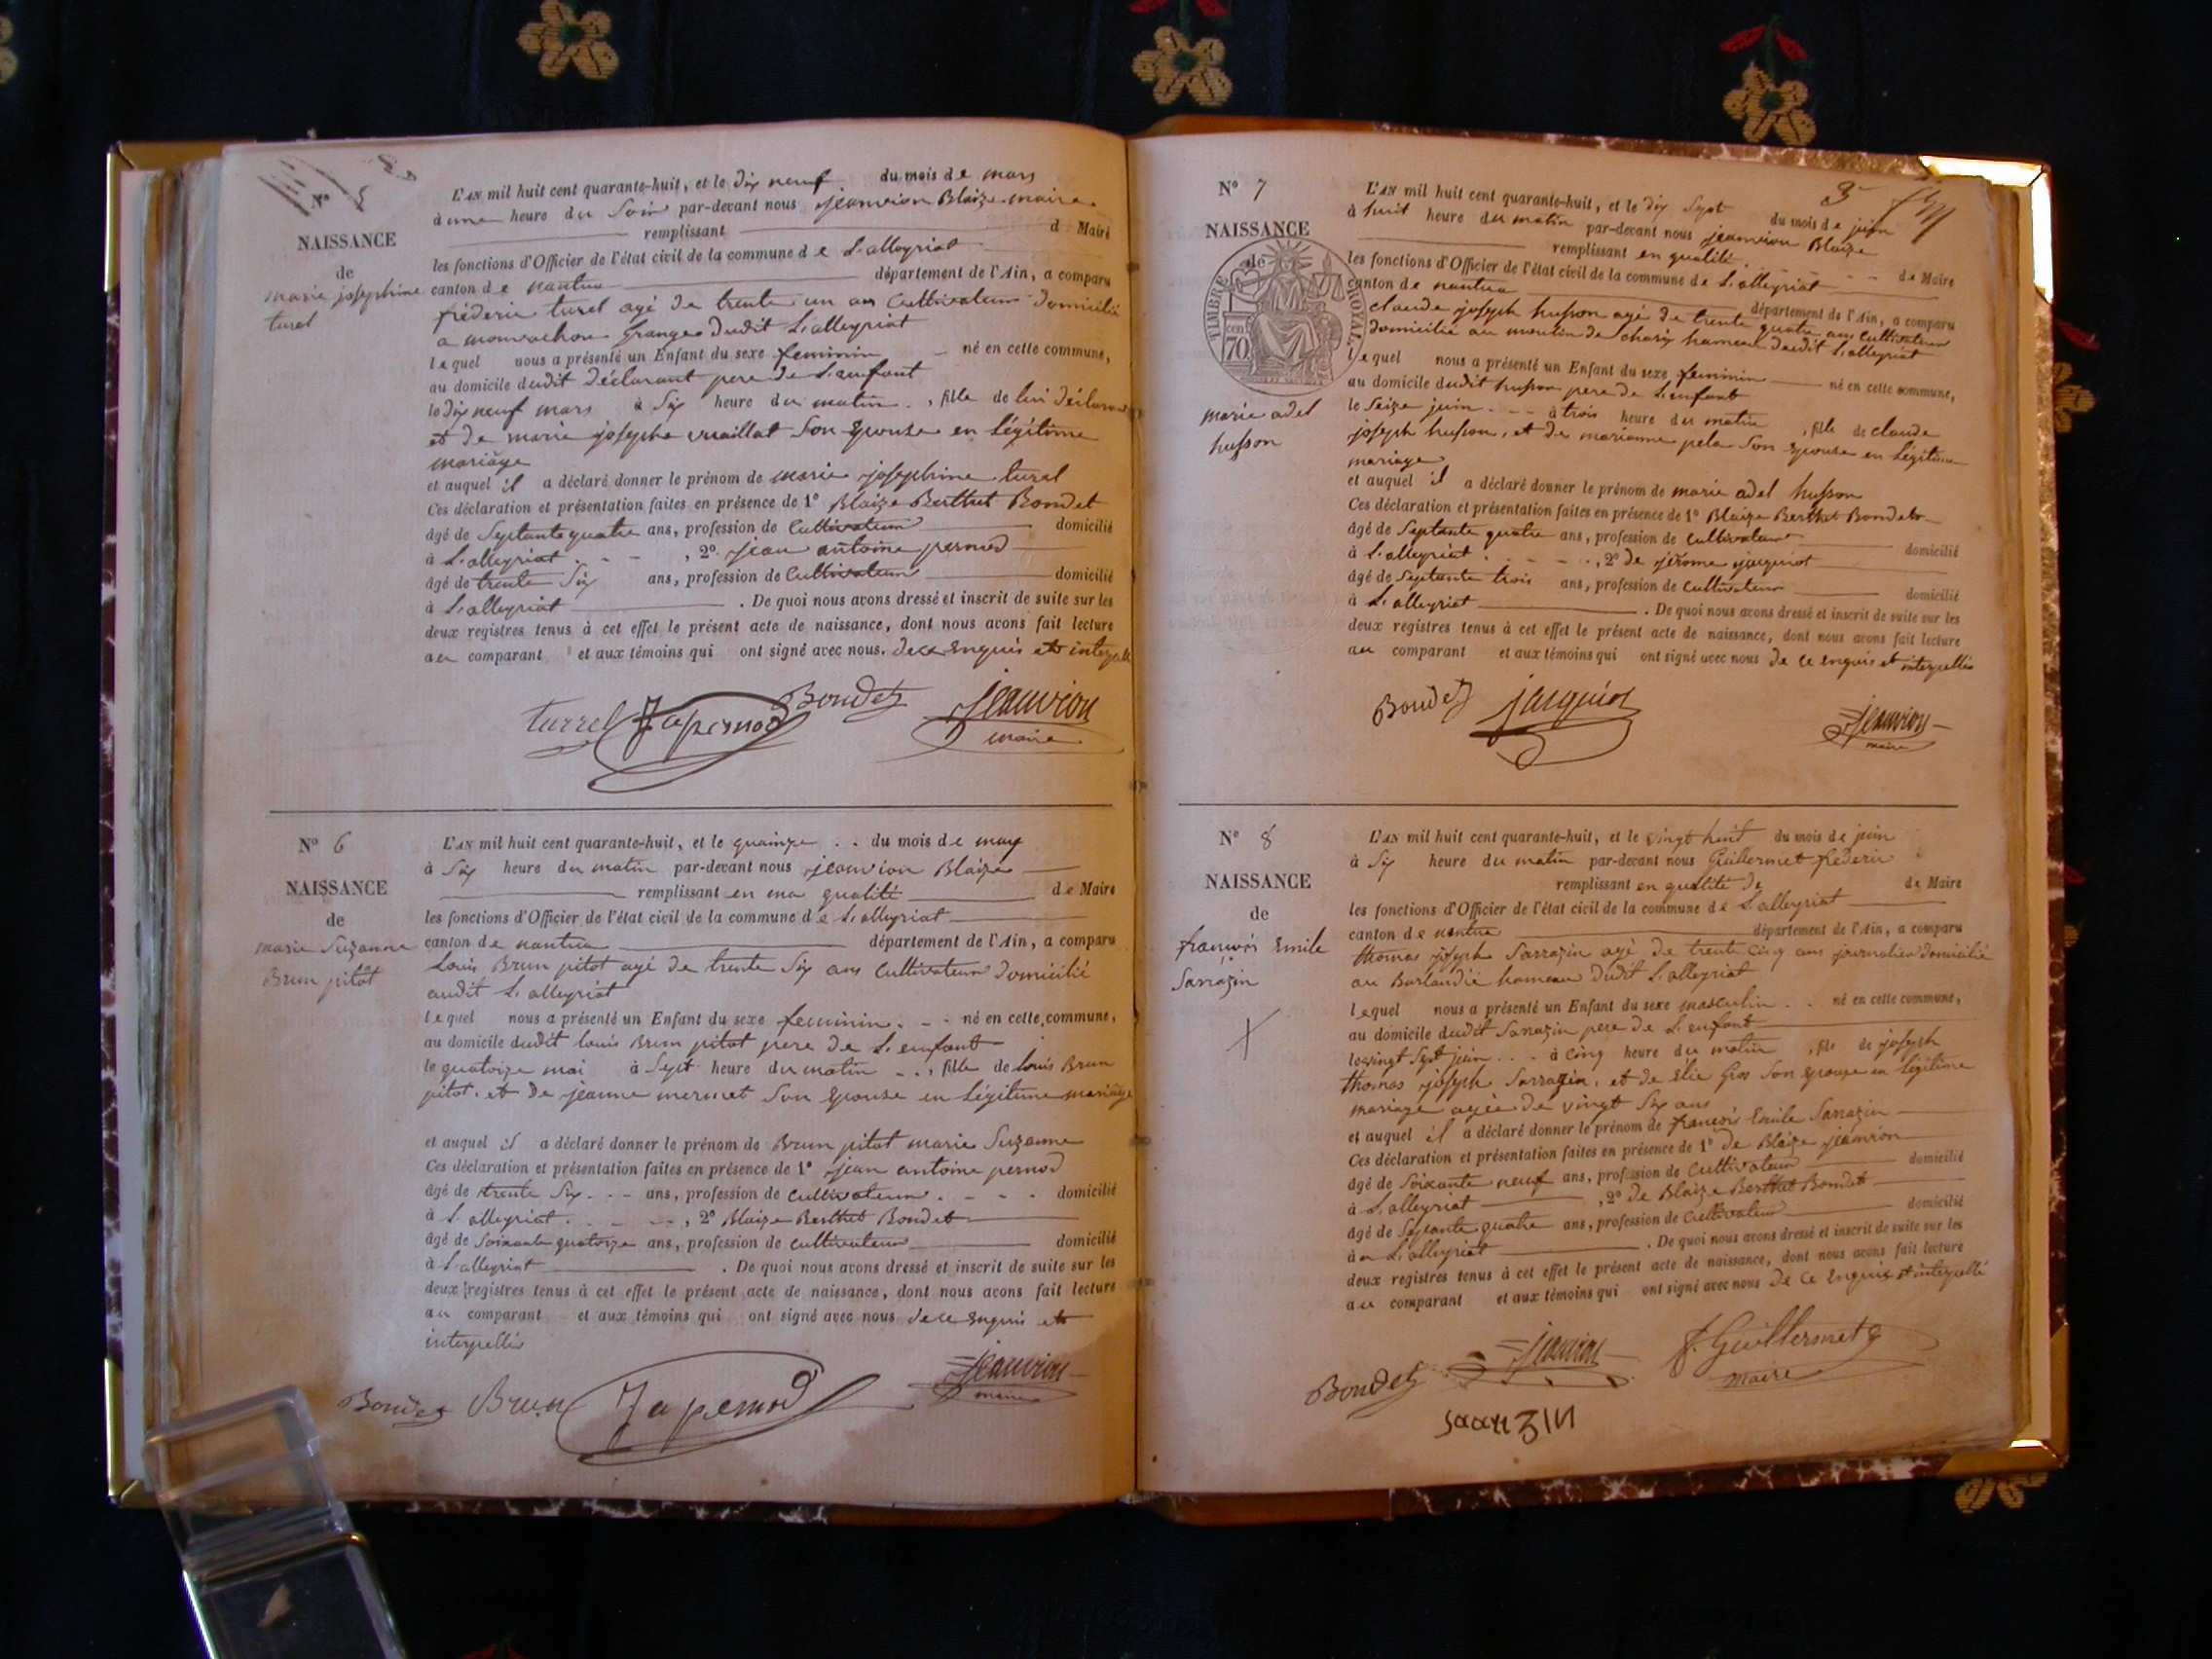 Nº 5
NAISSANCE
de
marie josephine
turel
L'AN mil huit cent quarante-huit, et le dix neuf du mois de mars
à une heure du Soir par-devant nous jeanvion Blaize maire
remplissant d Maire
les fonctions d'Officier de l'état civil de la commune de L'alleyriat
canton de nantua département de l'Ain, a comparu
fréderic turel agé de trente un ans Cultivateur domicilié
a Granges dudit L'alleyriat
lequel nous a présenté un Enfant du sexe feminin né en cette commune,
au domicile dudit déclarant pere de L'enfant
le dix neuf mars à Six heure du matin, fille de lui déclarant
et de marie josephe vuaillat Son Epouse en Légitime
mariage
et auquel il a déclaré donner le prénom de marie josephine turel
Ces déclaration et présentation faites en présence de 1º Blaize Berthet Bondet
âgé de Septante quatre ans, profession de Cultivateur domicilié
à L'alleyriat, 2º jean antoine pernod
âgé de trente Six ans, profession de Cultivateur domicilié
à L'alleyriat. De quoi nous avons dressé et inscrit de suite sur les
deux registres tenus à cet effet le présent acte de naissance, dont nous avons fait lecture
au comparant et aux témoins qui ont signé avec nous. de ce Enquis et interpellé
turrel Japernod Bondet Jeanvion
maire
Nº 6
NAISSANCE
de
marie Suzanne
Brun pitot
L'AN mil huit cent quarante-huit, et le quainze du mois de may
à Six heure du matin par-devant nous jeanvion Blaize
remplissant en ma qualité de Maire
les fonctions d'Officier de l'état civil de la commune de L'alleyriat
canton de nantua département de l'Ain, a comparu
Louis Brun pitot agé de trente Six ans Cultivateur domicilié
audit L'alleyriat
lequel nous a présenté un Enfant du sexe feminin né en cette commune,
au domicile dudit louis Brun pitot pere de L'enfant
le quatorze mai à Sept heure du matin, fille de louis Brun
pitot. et De jeanne mermet Son Epouse en Légitime mariage
et auquel il a déclaré donner le prénom de Brun pitot marie Suzanne
Ces déclaration et présentation faites en présence de 1º jean antoine pernod
âgé de trente Six ans, profession de Cultivateur domicilié
à L'alleyriat, 2º Blaize Berthet Bondet
âgé de Soixante quatorze ans, profession de Cultivateur domicilié
à L'alleyriat. De quoi nous avons dressé et inscrit de suite sur les
deux registres tenus à cet effet le présent acte de naissance, dont nous avons fait lecture
au comparant et aux témoins qui ont signé avec nous de ce Enquis et
interpellés
Bondet Brun Japernod Jeanvion
maire
Nº 7
NAISSANCE
de
TIMBRE ROYAL
70
marie adel
husson
3
L'AN mil huit cent quarante-huit, et le dix Sept du mois de juin
à huit heure du matin par-devant nous jeanvion Blaize
remplissant en qualité de Maire
les fonctions d'Officier de l'état civil de la commune de L'alleyriat
canton de nantua département de l'Ain, a comparu
claude joseph husson agé de trente quatre ans Cultivateur
domicilié au moulin de charix hameau dudit L'alleyriat
lequel nous a présenté un Enfant du sexe feminin né en cette commune,
au domicile dudit husson pere de L'enfant
le Seize juin à trois heure du matin, fille de claude
joseph husson, et de marianne pela Son Epouse en Légitime
mariage
et auquel il a déclaré donner le prénom de marie adel husson
Ces déclaration et présentation faites en présence de 1º Blaize Berthet Bondet
âgé de Septante quatre ans, profession de Cultivateur domicilié
à L'alleyriat, 2º de jérome jacquiot
âgé de Septante trois ans, profession de Cultivateur domicilié
à L'alleyriat. De quoi nous avons dressé et inscrit de suite sur les
deux registres tenus à cet effet le présent acte de naissance, dont nous avons fait lecture
au comparant et aux témoins qui ont signé avec nous de ce enquis et interpellés
Bondet jacquiot Jeanvion
maire
Nº 8
NAISSANCE
de
françois Emile
Sarrazin
L'AN mil huit cent quarante-huit, et le vingt huit du mois de juin
à Six heure du matin par-devant nous Guillermet fréderic
remplissant en qualité de de Maire
les fonctions d'Officier de l'état civil de la commune de L'alleyriat
canton de nantua département de l'Ain, a comparu
thomas joseph Sarrazin agé de trente Cinq ans journalier domicilié
au Burlandié hameau dudit L'alleyriat
lequel nous a présenté un Enfant du sexe masculin né en cette commune,
au domicile dudit Sarrazin pere de L'enfant
le vingt Sept juin à Cinq heure du matin, fils de joseph
thomas joseph Sarrazin, et de Elie Gros Son Epouse en Légitime
mariage agée de vingt Six ans
et auquel il a déclaré donner le prénom de françois Emile Sarrazin
Ces déclaration et présentation faites en présence de 1º de Blaize jeanvion
âgé de Soixante neuf ans, profession de Cultivateur domicilié
à L'alleyriat, 2º de Blaize Berthet Bondet
âgé de Septante quatre ans, profession de Cultivateur domicilié
à L'alleyriat. De quoi nous avons dressé et inscrit de suite sur les
deux registres tenus à cet effet le présent acte de naissance, dont nous avons fait lecture
au comparant et aux témoins qui ont signé avec nous de ce Enquis et interpellé
Bondet Jeanvion f. Guillermet
maire